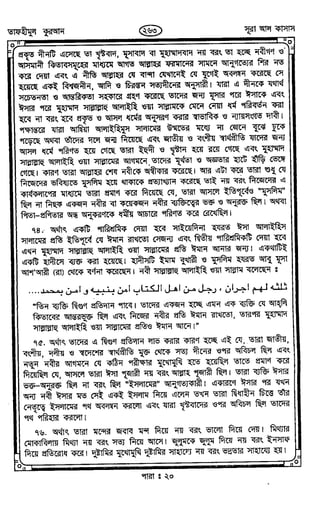 তাফহীমুল কুরআন
২৬৩
সূরা আল কাসাস
প্রকৃত দীনটি এসেছে তা খৃস্টবাদ, মূসাবাদ বা মুহাম্মাদবাদ নয় বরং তা হচ্ছে নবীগণ ও
আসমানী কিতাবসমূহের মাধ্যমে আগত আল্লাহর ফরমানের সামনে আনুগত্যের শির নত
করে দেয়া এবং এ নীতি আল্লাহর যে বান্দা যেখানেই যে যুগেই অবলম্বন করেছে সে
হয়েছে একই বিশ্বজনীন, আদি ও চিরন্তন সত্যদীনের অনুসারী। যারা এ দীনকে যথার্থ
সচেতনতা ও আন্তরিকতা সহকারে গ্রহণ করেছে তাদের জন্য মূসার পরে ঈসাকে এবং
ঈসার পরে মুহাম্মাদ সাল্লাল্লাহু আলাইহি ওয়া সাল্লামকে মেনে নেয়া ধর্ম পরিবর্তন করা
হবে না বরং হবে প্রকৃত ও আসল ধর্মের অনুসরণ করার স্বাভাবিক ও ন্যায়সংগত দাবী।
পক্ষান্তরে যারা আম্বিয়া আলাইহিমুস সালামের উম্মতের মধ্যে না জেনে বুঝে ঢুকে
পড়েছে অথবা তাঁদের দলে জন্ম নিয়েছে এবং জাতীয় ও বংশীয় স্বার্থপ্রীতি যাদের জন্য
আসল ধর্মে পরিণত হয়ে গেছে তারা ইহুদী ও খৃস্টান হয়ে রয়ে গেছে এবং মুহাম্মাদ
সাল্লাল্লাহু আলাইহি ওয়া সাল্লামের আগমনে, তাদের মূর্খতা ও অজ্ঞতার হাটে হাঁড়ি ভেঙ্গে
গেছে। কারণ তারা আল্লাহর শেষ নবীকে অস্বীকার করেছে। আর এটা করে তারা শুধু যে
নিজেদের ভবিষ্যতে মুসলিম হয়ে থাকাকে প্রত্যাখ্যান করেছে তাই নয় বরং নিজেদের এ
কার্যকলাপের মাধ্যমে তারা প্রমাণ করে দিয়েছে যে, তারা আসলে ইতিপূর্বেও "মুসলিম"
ছিল না নিছক একজন নবীর বা কয়েকজন নবীর ব্যক্তিত্বের ভক্ত ও অনুরক্ত ছিল। অথবা
পিতা-প্রপিতার অন্ধ অনুকরণকে ধর্মীয় আচারে পরিণত করে রেখেছিল।
৭৪. অর্থাৎ একটি পারিশ্রমিক দেয়া হবে সাইয়েদিনা হযরত ঈসা আলাইহিস
সালামের প্রতি ইতিপূর্বে যে ঈমান রাখতো সেজন্য এবং দ্বিতীয় পারিশ্রমিকটি দেয়া হবে
এখন মুহাম্মাদ সাল্লাল্লাহু আলাইহি ওয়া সাল্লামের প্রতি ঈমান আনার জন্য। একথাটিই
একটি হাদীসে ব্যক্ত করা হয়েছে। হাদীসটি ইমাম বুখারী ও মুসলিম হযরত আবু মূসা
আশ'আরী (রা) থেকে বর্ণনা করেছেন। নবী সাল্লাল্লাহু আলাইহি ওয়া সাল্লাম বলেছেন :
ثلثة لهم اجران ، رجل من اهل الكتاب امن بنبيه و امن بمحمد....
"তিন ব্যক্তি দ্বিগুণ প্রতিদান পাবে। তাদের একজন হচ্ছে এমন এক ব্যক্তি যে আহলি
কিতাবের অন্তরভুক্ত ছিল এবং নিজের নবীর প্রতি ঈমান রাখতো, তারপর মুহাম্মাদ
সাল্লাল্লাহু আলাইহি ওয়া সাল্লামের প্রতিও ঈমান আনে।"
৭৫. অর্থাৎ তাদের এ দ্বিগুণ প্রতিদান লাভ করার কারণ হচ্ছে এই যে, তারা জাতীয়,
বংশীয়, দলীয় ও স্বদেশের স্বার্থপ্রীতি মুক্ত থেকে সত্য দীনের ওপর অবিচল ছিল এবং
নতুন নবীর আগমনে যে কঠিন পরীক্ষার মুখোমুখি হতে হয়েছিল তাতে প্রমাণ করে
দিয়েছিল যে, আসলে তারা ঈসা পূজারী নয় বরং আল্লাহর পূজারী ছিল। তারা ব্যক্তি ঈসার
ভক্ত-অনুরক্ত ছিল না বরং ছিল "ইসলামের" আনুগত্যকারী। একারণে ঈসার পর যখন
অন্য নবী ঈসার মত সেই একই ইসলাম নিয়ে এলেন তখন তারা দ্বিধাহীন চিত্তে তাঁর
নেতৃত্বে ইসলামের পথ অবলম্বন করলো এবং যারা খৃস্টবাদের ওপর অবিচল ছিল তাদের
পথ পরিহার করলো।
৭৬. অর্থাৎ তারা মন্দের জবাব মন্দ দিয়ে নয় বরং ভালো দিয়ে দেয়। মিথ্যার
মোকাবিলায় মিথ্যা নয় বরং সত্য নিয়ে আসে। জুলুমকে জুলুম দিয়ে নয় বরং ইনসাফ
দিয়ে প্রতিরোধ করে। দুষ্টামির মুখোমুখি দুষ্টামির সাহায্যে নয় বরং ভদ্রতার সাহায্যে হয়।
পারা : ২০